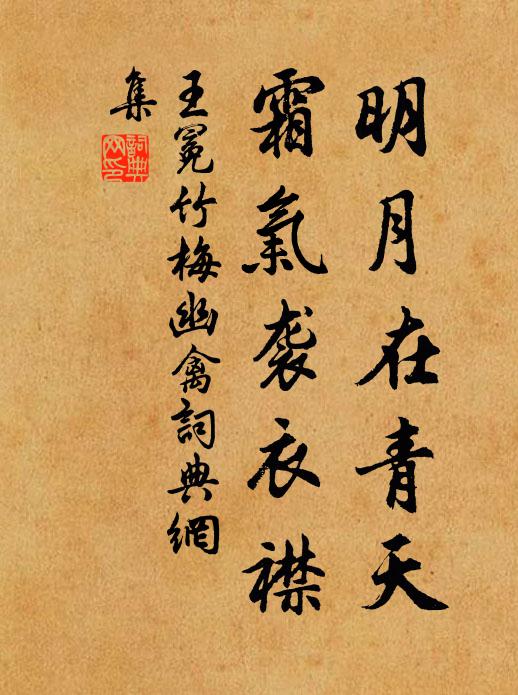 明月在青天
霜氣袭衣襟
王冕竹梅幽禽詞典網
集
詞典
网印